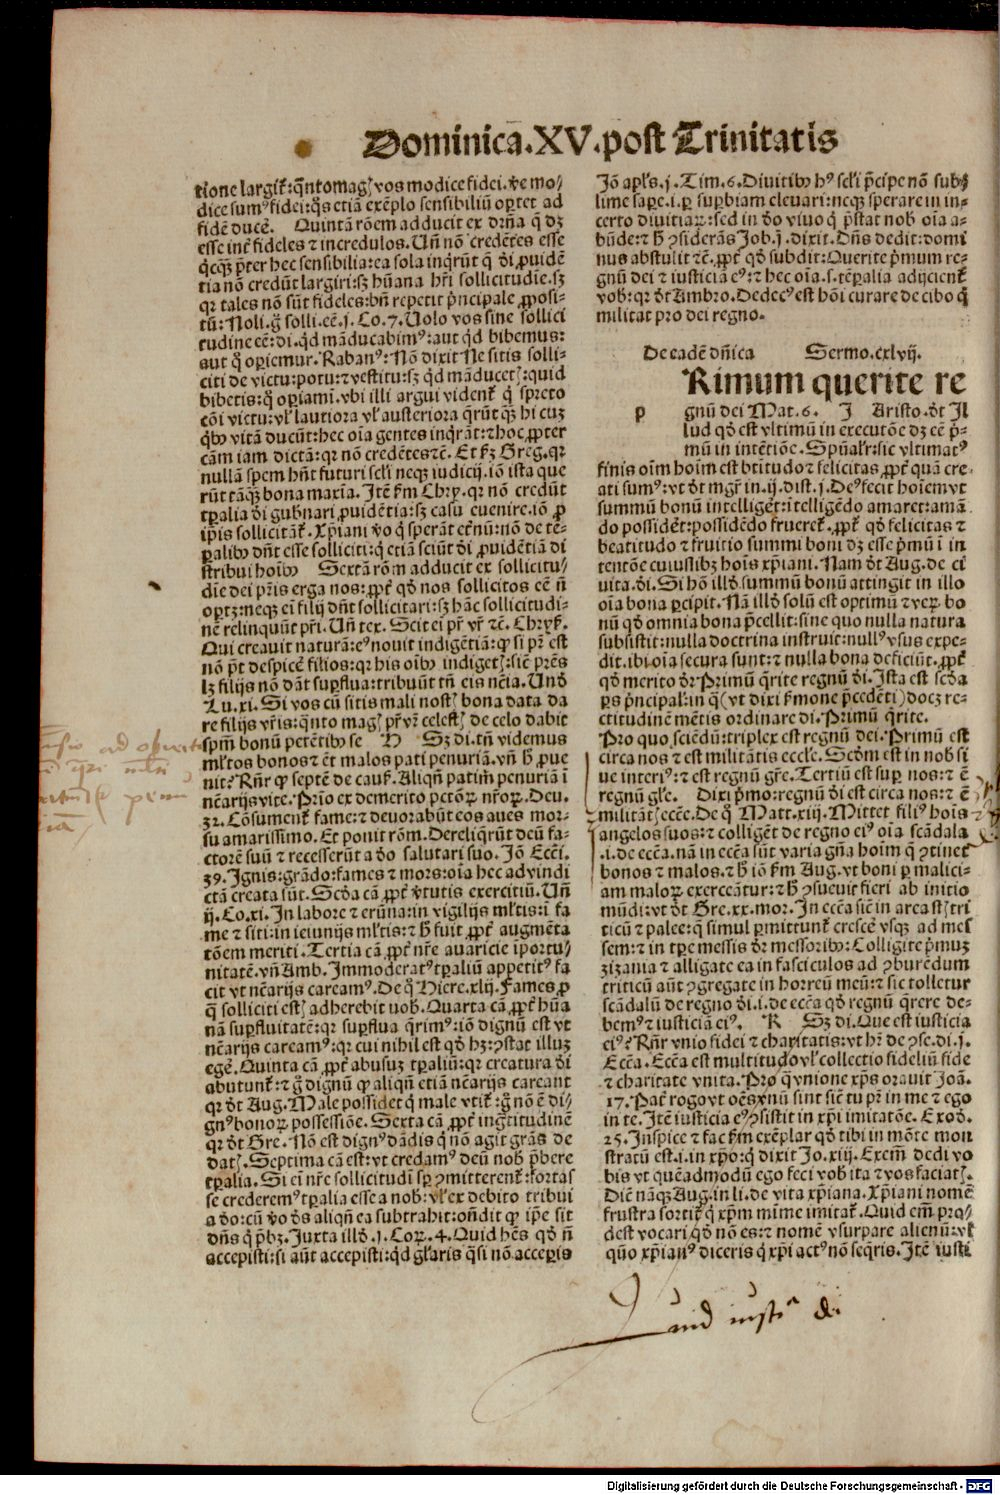 Dominica.XV.post Trinitatis
tione largit̃:q̃ntomag̃ vos modice fidei. ve mo/
dice sumꝰ fidei:q̃s etiã exẽplo sensibiliũ oꝑtet ad
fidẽ ducẽ. Quintã rõem adducit ex dr̃na q̃ dꝫ
esse int̃ fideles ⁊ incredulos. Uñ nõ credẽtes esse
q̃cq̃ꝫ p̃ter hec sensibilia:ea sola inq̃rũt q̃ d̃i ꝓuidẽ
tia nõ credũt largiri:sꝫ hũana hr̃i sollicitudĩe.sꝫ
qꝛ tales nõ sũt fideles:bñ repetit p̃ncipale ꝓposi-
tũ:Noli.g̃ solli.eẽ.j.Co.7.Uolo vos sine sollici
tudine eẽ:di.q̃d mãducabimꝰ:aut q̃d bibemus:
aut q̃ oꝑiemur.Rabanꝰ:Nõ dixit Ne sitis solli-
citi de victu:potu:⁊ vestitu:sꝫ q̃d mãducet̃:quid
bibetis:q̃ oꝑiami.vbi illi argui vident̃ q̃ spreto
cõi victu:vl̃ lautiora vl̃ austeriora q̃rũt q̃ꝫ hi cuꝫ
q̃bꝰ vitã ducũt:hec oĩa gentes inq̃rãt:⁊ hoc ꝓpter
cãm iam dictã:qꝛ nõ credẽtes ⁊ẽ. Et ẜꝫ Greg.qꝛ
nullam spem hñt futuri scl̃i neqꝫ iudicij.iõ ista que
rũt tãq̃ꝫ bona maxĩa.Itẽ ẜm Chry.qꝛ nõ credũt
tꝑalia d̃i gub̃nari ꝓuidẽtia:sꝫ casu euenire.iõ ꝓ
ip̃is sollicitãt̃.Xp̃iani v̾o q̃ sperãt et̃nũ:nõ de te-
ꝑalibꝰ dñt esse solliciti:q̃ etiã sciũt d̃i ꝓuidẽtiã di
stribui hoĩbꝰ Sextã rõm adducit ex sollicitu/
dĩe dei pr̃is erga nos:ꝓpt̃ qd̃ nos sollicitos eẽ ñ
oꝑtꝫ:neqꝫ eĩ filij dñt sollicitari:sꝫ hãc sollicitudi-
nẽ relinquũt pr̃i.Uñ tex.Scit ei pr̃ vr̃ ⁊ẽ.Chryẜ.
Qui creauit naturã:eꝰ nouit indigẽtiã:ꝙ si pr̃ est
nõ p̃t despicẽ filios:qꝛ his oĩbꝰ indiget̃:sic̃ pr̃es
lꝫ filijs nõ dãt suꝑflua:tribuũt tñ eis nc̃ia.Und̃
Lu.xi.Si vos cũ sitis mali nost̃ bona data da
re filijs vr̃is:q̃nto mag̃ pr̃ vr̃ celest̃ de celo dabit
spm̃ bonũ petẽtibꝰ se D Sꝫ di.tñ videmus
ml̃tos bonos ⁊ et̃ malos pati penuriã.vñ h̃ ꝓue
nit? Rñr ꝙ septẽ de cauẜ.Aliqñ patim̃ penuriã ĩ
nc̃arijs vite.Prĩo ex demerito pctõꝝ nr̃oꝝ.Deu.
32.Cõsument̃ fame:⁊ deuorabũt eos aues mor-
su amarissimo.Et ponit rõm.Dereliq̃rũt deũ fa-
ctorẽ suũ ⁊ recesserũt a d̃o salutari suo.Iõ Ecc̃i.
39.Ignis:grãdo:fames ⁊ mors:oĩa hec ad vindi
ctã creata sũt.Scd̃a cã ꝓpt̃ v̾tutis exercitiũ.Uñ
ij.Co.xi.In labore ⁊ erũna:in vigilijs ml̃tis:ĩ fa
me ⁊ siti:in ieiunijs ml̃tis:⁊ h̃ fuit ꝓpt̃ augmẽta
tõem meriti.Tertia cã ꝓpt̃ nr̃e auaricie ĩportu/
nitatẽ.vñ Amb.Immoderatꝰ tꝑaliũ appetitꝰ fa
cit vt nc̃arijs careamꝰ.De q̃ Hiere.xlij.Fames ꝓ
q̃ solliciti est̃ adherebit uob̃.Quarta cã ꝓpt̃ hũa
nã suꝑfluitatẽ:qꝛ suꝑflua q̃rimꝰ:iõ dignũ est vt
nc̃arijs careamꝰ:qꝛ cui nihil est qd̃ hꝫ:ꝯstat illuꝫ
egẽ.Quinta cã ꝓpt̃ abusuꝫ tꝑaliũ:qꝛ creatura d̃i
abutunt̃:⁊ g̃ dignũ ꝙ aliqñ etiã nc̃arijs careant
qꝛ d̃t Aug.Male possidet q̃ male vtit̃:g̃ nõ ẽ di/
gnꝰ bonoꝝ possessiõe.Sexta cã ꝓpt̃ ingr̃titudinẽ
qꝛ d̃t Gre.Nõ est dignꝰ dãdis q̃ nõ agit grãs de
dat̃.Septima cã est:vt credamꝰ deũ nob̃ p̃bere
tꝑalia.Si eĩ nr̃e sollicitudĩ sꝑ ꝯmitterent̃:fortas
se crederemꝰ tꝑalia esse a nob̃:vl̃ ex debito tribui
a d̃o:cũ v̾o d̃s aliqñ ea subtrahit:oñdit ꝙ ip̃e sit
dñs q̃ p̃bꝫ.Juxta illd̃.j.Coꝝ.4.Quid hẽs qd̃ ñ
accepisti:si aũt accepisti:q̃d gl̃aris q̃si nõ acceꝑis
Jõ apl̃s.j.Tim.6.Diuitibꝰ hꝰ scl̃i p̃cipe nõ sub/
lime saꝑe.i.ꝑ suꝑbiam eleuari:neqꝫ sperare in in-
certo diuitiaꝝ:sed in d̃o viuo q̃ p̃stat nob̃ oĩa a-
bũde:⁊ h̃ ꝯsiderãs Job.j.dixit.Dñs dedit:domi
nus abstulit ⁊ẽ.ꝓpt̃ qd̃ subdit:Querite p̃mum re-
gnũ dei ⁊ iusticiã eꝰ:⁊ hec oĩa.s.tẽꝑalia adijcient̃
vob̃:qꝛ d̃t Ambro.Dedecꝰ est hõi curare de cibo q̃
militat pro dei regno.
De eadẽ dñica Sermo.cxlvij.
p Rimum querite re
gnũ dei Mat.6. I Aristo.d̃t Il
lud qd̃ est vltimũ in executõe dꝫ eẽ p̃-
mũ in intẽtiõe.Spũalr̃:sic vltimatꝰ
finis oĩm hoĩm est btitudo ⁊ felicitas ꝓpt̃ quã cre-
ati sumꝰ:vt d̃t mgr̃ in.ij.dist.j.Deꝰ fecit hoĩem vt
summũ bonũ intelligẽt:ĩtelligẽdo amaret:amã
do possidẽt:possidẽdo frueret̃.ꝓpt̃ qd̃ felicitas ⁊
beatitudo ⁊ fruitio summi boni dꝫ esse p̃mũ ĩ in
tentõe cuiuslibꝫ hoĩs xp̃iani.Nam d̃t Aug.de ci
uita.d̃i.Si hõ illd̃ summũ bonũ attingit in illo
oĩa bona ꝑcipit.Nã illd̃ solũ est optimũ ⁊ veꝝ bo
nũ qd̃ omnia bona p̃cellit:sine quo nulla natura
subsistit:nulla doctrina instruit:nullꝰ vsus expe-
dit.ibi oĩa secura sunt:⁊ nulla bona deficiũt.ꝓpt̃
qd̃ merito d̃r Primũ q̃rite regnũ d̃i.Ista est scd̃a
ps̃ p̃ncipal̃:in q̃(vt dixi ẜmone p̃cedẽti)docꝫ re-
ctitudinẽ mẽtis ordinare di.Primũ q̃rite.
Pro quo sciẽdũ:triplex est regnũ dei.Primũ est
circa nos ⁊ est militãtis eccl̃e.Scd̃m est in nob̃ si
ue interiꝰ:⁊ est regnũ gr̃e.Tertiũ est suꝑ nos:⁊ ẽ
regnũ gl̃e. Dixi p̃mo:regnũ d̃i est circa nos:⁊ ẽ
militãt̃ ecc̃e.De q̃ Matt.xiij.Mittet filiꝰ hoĩs
angelos suos:⁊ colligẽt de regno eiꝰ oĩa scãdala
.i.de ecc̃a.nã in ecc̃a sũt varia gñа hoĩm q̃ ꝯtinet
bonos ⁊ malos.⁊ h̃ iõ ẜm Aug.vt boni ꝑ malici-
am maloꝝ exerceãtur:⁊ h̃ ꝯsueuit fieri ab initio
mũdi:vt d̃t Gre.xx.mor.In ecc̃a sic̃ in area st̃ tri
ticũ ⁊ palee:q̃ simul ꝑmittunt̃ crescẽ vsqꝫ ad mes
sem:⁊ in tꝑe messis d̃r messoribꝰ:Colligite p̃muꝫ
zizania ⁊ alligate ea in fasciculos ad ꝯburẽdum
triticũ aũt ꝯgregate in horreũ meũ:⁊ sic tolletur
scãdalũ de regno d̃i.i.de ecc̃a qd̃ regnũ q̃rere de-
bemꝰ ⁊ iusticiã eiꝰ. K Sꝫ di.Que est iusticia
eiꝰ? Rñr vnio fidei ⁊ charitatis:vt hr̃ de ꝯse.di.j.
Ecc̃a.Ecc̃a est multitudo vl̃ collectio fideliũ fide
⁊ charitate vnita.Pro q̃ vnione xp̃s orauit Joã.
17.Pat̃ rogo vt oẽs vnũ sint sic̃ tu pr̃ in me ⁊ ego
in te.Itẽ iusticia eꝰ ꝯsistit in xp̃i imitatõe.Exod̃.
25.Inspice ⁊ fac ẜm exẽplar qd̃ tibi in mõte mon
stratũ est.i.in xp̃o:q̃ dixit Jo.xiij.Exem̃ dedi vo
bis vt quẽadmodũ ego feci vob̃ ita ⁊ vos faciat̃.
Diẽ nãqꝫ Aug.in li.de vita xp̃iana.Xp̃iani nomẽ
frustra sortit̃ q̃ xp̃m mĩme imitat̃.Quid eĩ ꝓ-
dest vocari qd̃ nõ es:⁊ nomẽ vsurpare alienũ:vl̃
quõ xp̃ianꝰ diceris q̃ xp̃i actꝰ nõ seq̃ris.Itẽ iusti
Digitalisierung gefördert durch die Deutsche Forschungsgemeinschaft - DFG